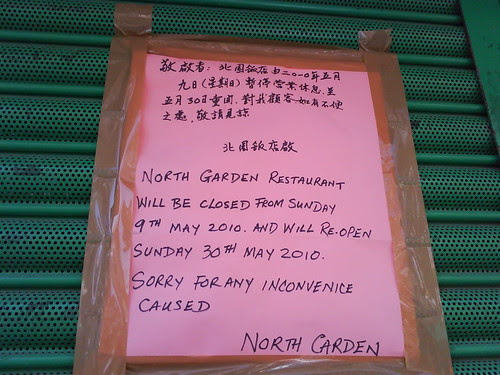 敬啟者：北園飯店由二〇一〇年五月
九日(星期日)暫停營業休息,至
五月30日重開.對我顧客如有不便
之處,敬請見諒
北園飯店啟
NORTH GARDEN RESTAURANT
WILL BE CLOSED FROM SUNDAY
9TH MAY 2010. AND WILL RE.OPEN
SUNDAY 30TH MAY 2010.
SORRY FOR ANY INCONVENICE
CAUSED
NORTH GARDEN